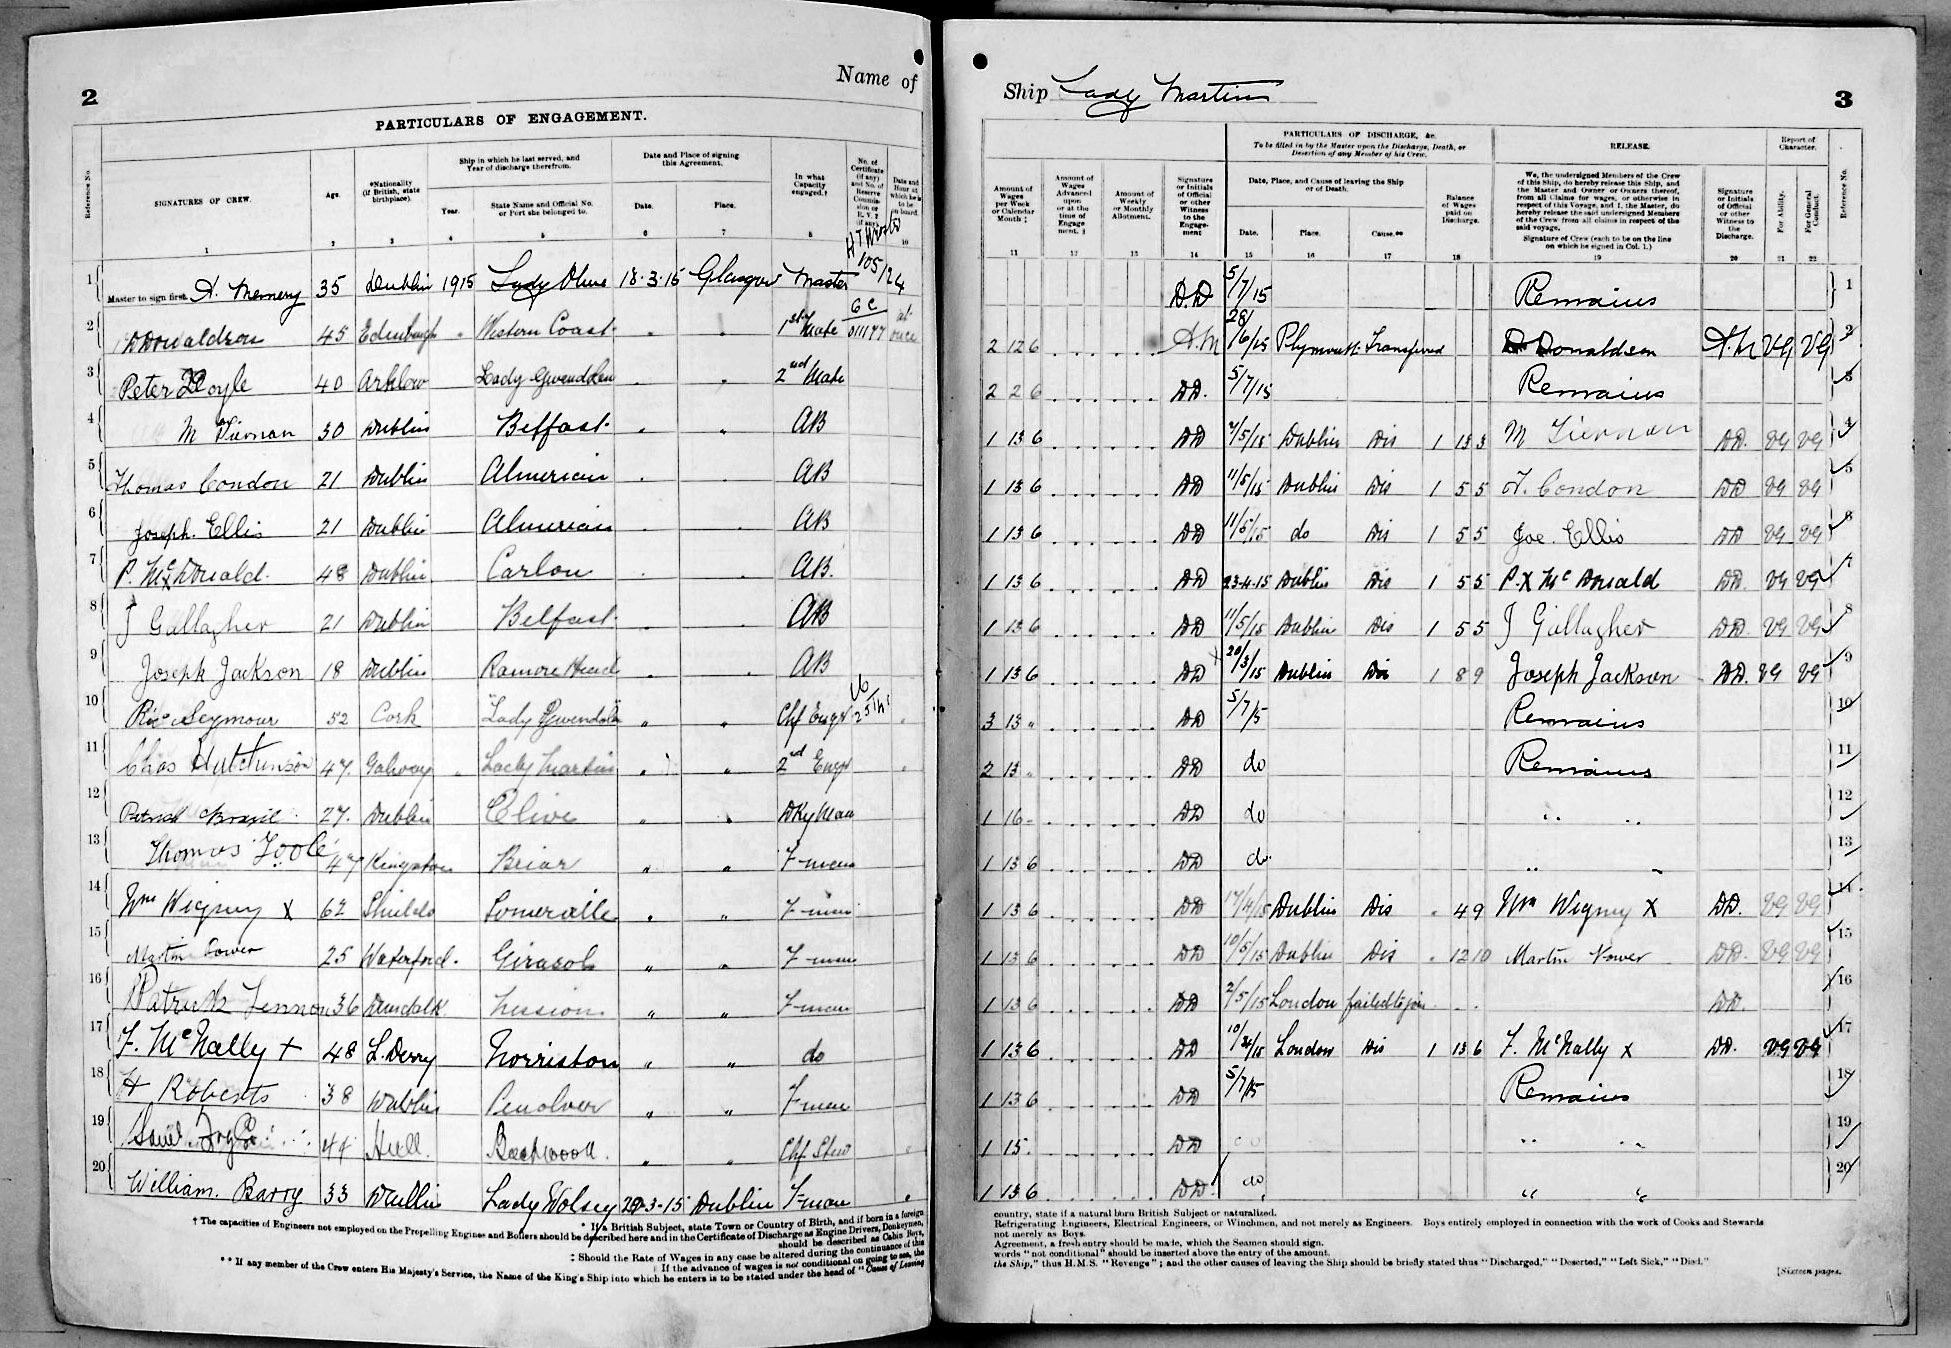 2
Name of
PARTICULARS OF ENGAGEMENT.
Reference No.
SIGNATURES OF CREW.
Age.
*Nationality (if British, state birthplace).
Ship in which he last served, and Year of discharge therefrom.
Year.
State Name and Official No. or Port she belonged to.
Date and Place of signing this Agreement.
Date.
Place.
In what Capacity engaged.†
No. of Certificate (if any) and No. of Reserve Commission or R.V.2 (if any)
Date and Hour at which he is to be on board.
1 2 3 4 5 6 7 8 10
1 Master to sign first. A. Memery 35 Dublin 1915 Lady Olive 18.3.15 Glasgow Master 105/24
2 D Donaldson 45 Edinburgh " Western Coast " " 1st Mate 6c 011177 at once
3 Peter Doyle 40 Arklow Lady Gwendolen . . 2nd Mate
4 M Tiernan 30 Dublin Belfast . " AB
5 Thomas Condon 21 Dublin Almerian . . AB
6 Joseph Ellis 21 Dublin Almerian . . AB
7 P. Mc X Donald. 48 Dublin Carlow . . AB.
8 J Gallagher 21 Dublin Belfast . . AB
9 Joseph Jackson 18 Dublin Ramore Head . . AB
10 Seymour 52 Cork "Lady Gwendolen " " Chf Engr
11 Chas Hutchinson 47. Galway " Lady Martin " " 2nd Engr
12 Patrick Brazil 27. Dublin Clive " " Dkyman
13 Thomas Toole 47 Kingstown Briar " " F-man
14 Wm Wigmy X 62 Shields Someralle " " F-man
15 Martin Power 25 Waterford. Girasol " " F-man
16 Patrick Lennon 36 Dundalk. " " F-man
17 F. McNally + 48 L.Derry Norriston " " do
18 H Roberts 38 Dublin Penolver " " F-man
19 44 Hull. " " Chf Stew
20 William. Barry 33 Dublin Lady Wolsey 20-3-15 Dublin F-man
* If a British Subject, state Town or Country of Birth, and if born in a foreign
† The capacities of Engineers not employed on the Propelling Engines and Boilers should be described here and in the Certificate of Discharge as Engine Drivers, Donkeymen,
should be described as Cabin Boys,
‡ Should the Rate of Wages in any case be altered during the continuance of this
If the advance of wages is not conditional on going to sea, the
** If any member of the Crew enters His Majesty's Service, the Name of the King's Ship into which he enters is to be stated under the head of "Cause of Leaving
Ship Lady Martin
3
PARTICULARS OF DISCHARGE, &c.
To be filled in by the Master upon the Discharge, Death, or Desertion of any Member of his Crew.
RELEASE.
Report of Character.
Amount of Wages per Week or Calendar Month ‡
Amount of Wages Advanced upon or at the time of Engagement. §
Amount of Weekly or Monthly Allotment.
Signature or Initials of Official or other Witness to the Engagement
Date, Place, and Cause of leaving the Ship or of Death.
Date.
Place.
Cause.**
Balance of Wages paid on Discharge.
We, the undersigned Members of the Crew of this Ship, do hereby release this Ship, and the Master and Owner or Owners thereof, from all Claims for wages, or otherwise in respect of this Voyage, and I, the Master, do hereby release the said undersigned Members of the Crew from all claims in respect of the said voyage.
Signature of Crew (each to be on the line on which he signed in Col. 1.)
Signature or Initials of Official or other Witness to the Discharge.
For Ability.
For General Conduct.
Reference No.
11 12 13 14 15 16 17 18 19 20 21 22
D.D 5/7/15 Remains 1
2 12 6 A.M 28/6/15 Plymouth Transferred D Donaldson A.M VG VG 2
2 2 6 DD. 5/7/15 Remains 3
1 13 6 DD 7/5/15 Dublin Dis 1 13 3 M Tiernan DD. VG VG 4
1 13 6 DD 11/5/15 Dublin Dis 1 5 5 T. Condon DD VG VG 5
1 13 6 DD 11/5/15 do Dis 1 5 5 Joe. Ellis DD VG VG 6
1 13 6 DD 23-4-15 Dublin Dis 1 5 5 P. X Mc Donald DD. VG VG 7
1 13 6 DD 11/5/15 Dublin Dis 1 5 5 J Gallagher DD. VG VG 8
1 13 6 DD 20/3/15 Dublin Dis 1 8 9 Joseph Jackson DD. VG VG 9
3 13 " DD 5/7/5 Remains 10
2 13 " DD do Remains 11
1 16 - DD do " " 12
1 13 6 DD do. " " 13
1 13 6 DD 17/4/15 Dublin Dis . 4 9 Wm Wigmy X DD. VG VG 14
1 13 6 DD 10/5/15 Dublin Dis . 12 10 Martin Power DD. VG VG 15
1 13 6 DD 2/5/15 London failed to join . . DD. 16
1 13 6 DD London Dis 1 13 6 F. McNally X DD. VG VG 17
1 13 6 DD 5/7/15 Remains 18
1 15. DD " " 19
1 13 6 DD. do " " 20
country, state if a natural born British Subject or naturalized.
Refrigerating Engineers, Electrical Engineers, or Winchmen, and not merely as Engineers. Boys entirely employed in connection with the work of Cooks and Stewards
not merely as Boys.
Agreement, a fresh entry should be made, which the Seamen should sign.
words "not conditional" should be inserted above the entry of the amount.
the Ship," thus H.M.S. "Revenge"; and the other causes of leaving the Ship should be briefly stated thus "Discharged," "Deserted," "Left Sick," "Died."
[Sixteen pages.